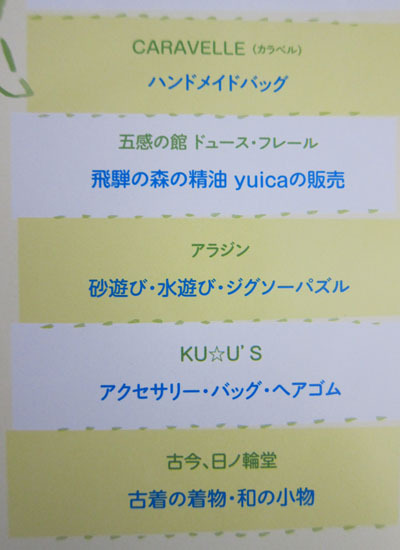 CARAVELLE (カラベル)
ハンドメイドバッグ
五感の館 ドゥース・フレール
飛騨の森の精油 yuicaの販売
アラジン
砂遊び・水遊び・ジグソーパズル
KU☆U'S
アクセサリー・バッグ・ヘアゴム
古今、日ノ輪堂
古着の着物・和の小物